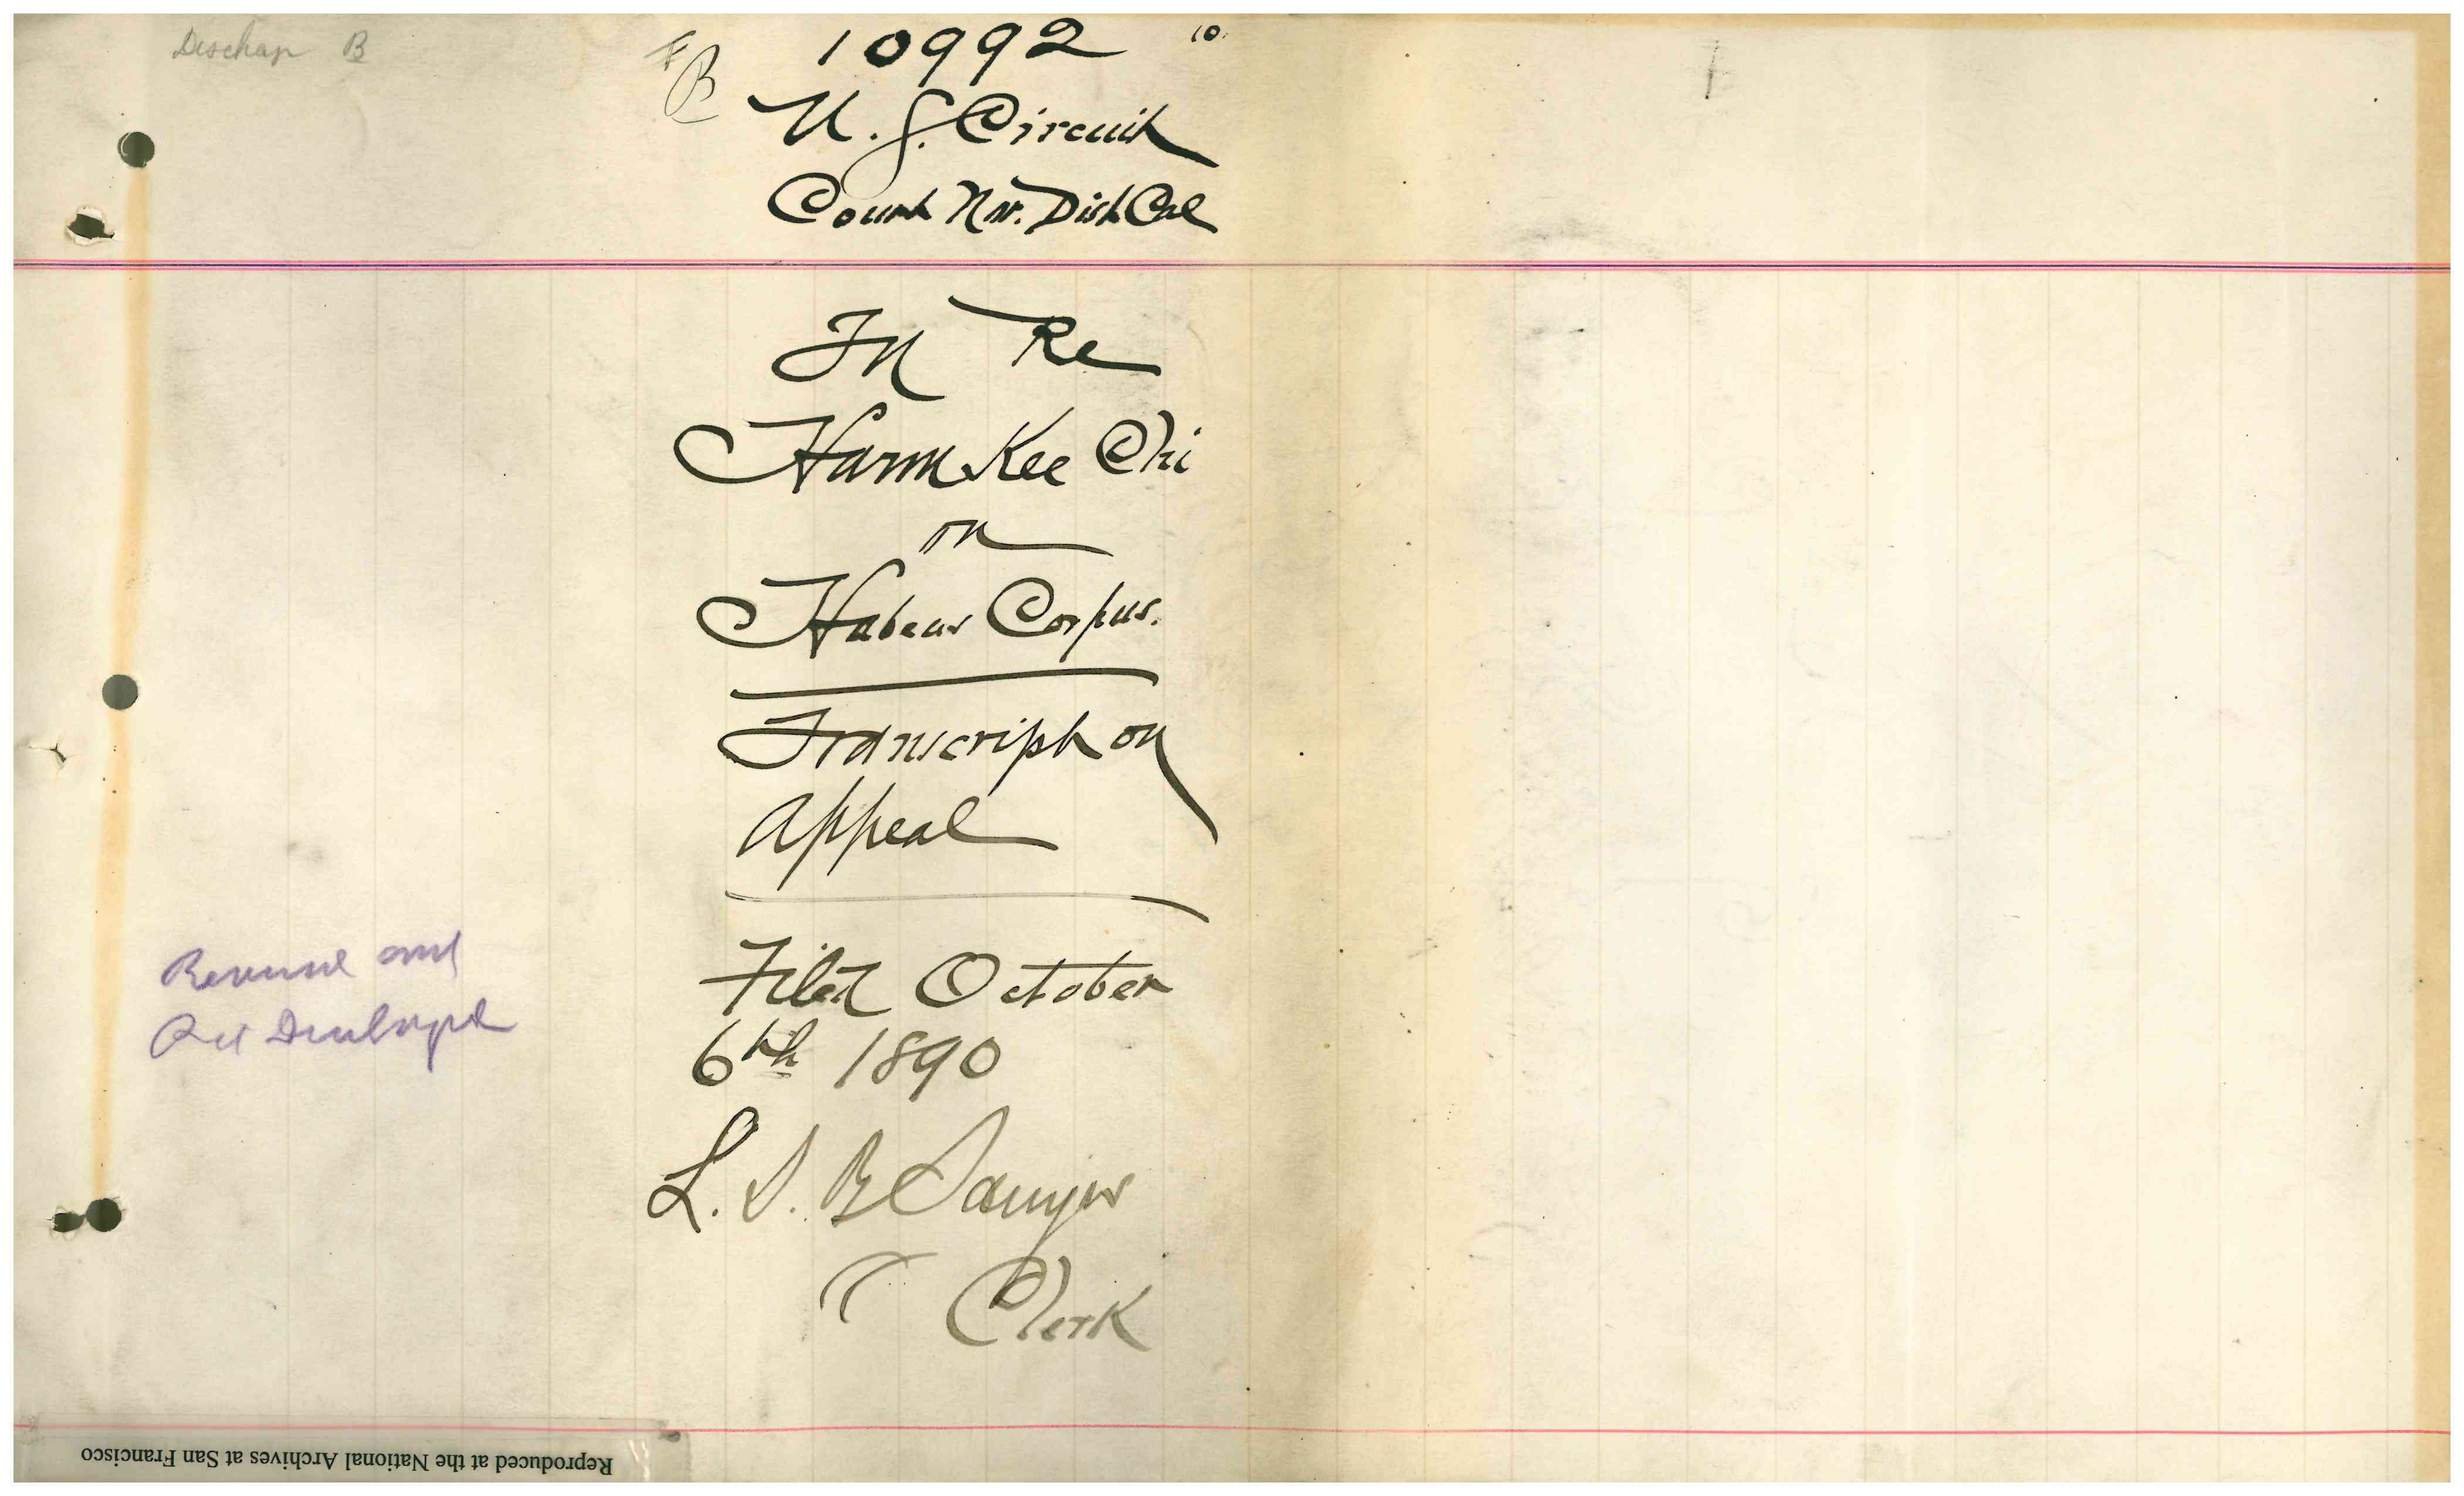 B
10992
10.
B
U. S. Circuit
Court Nor. Dist Cal
In Re
Hamm Kee Chi
on
Habeas Corpus.
Transcript on
Appeal
Filed October
6th 1890
L. S. B Sawyer
Clerk
and
Reproduced at the National Archives at San Francisco